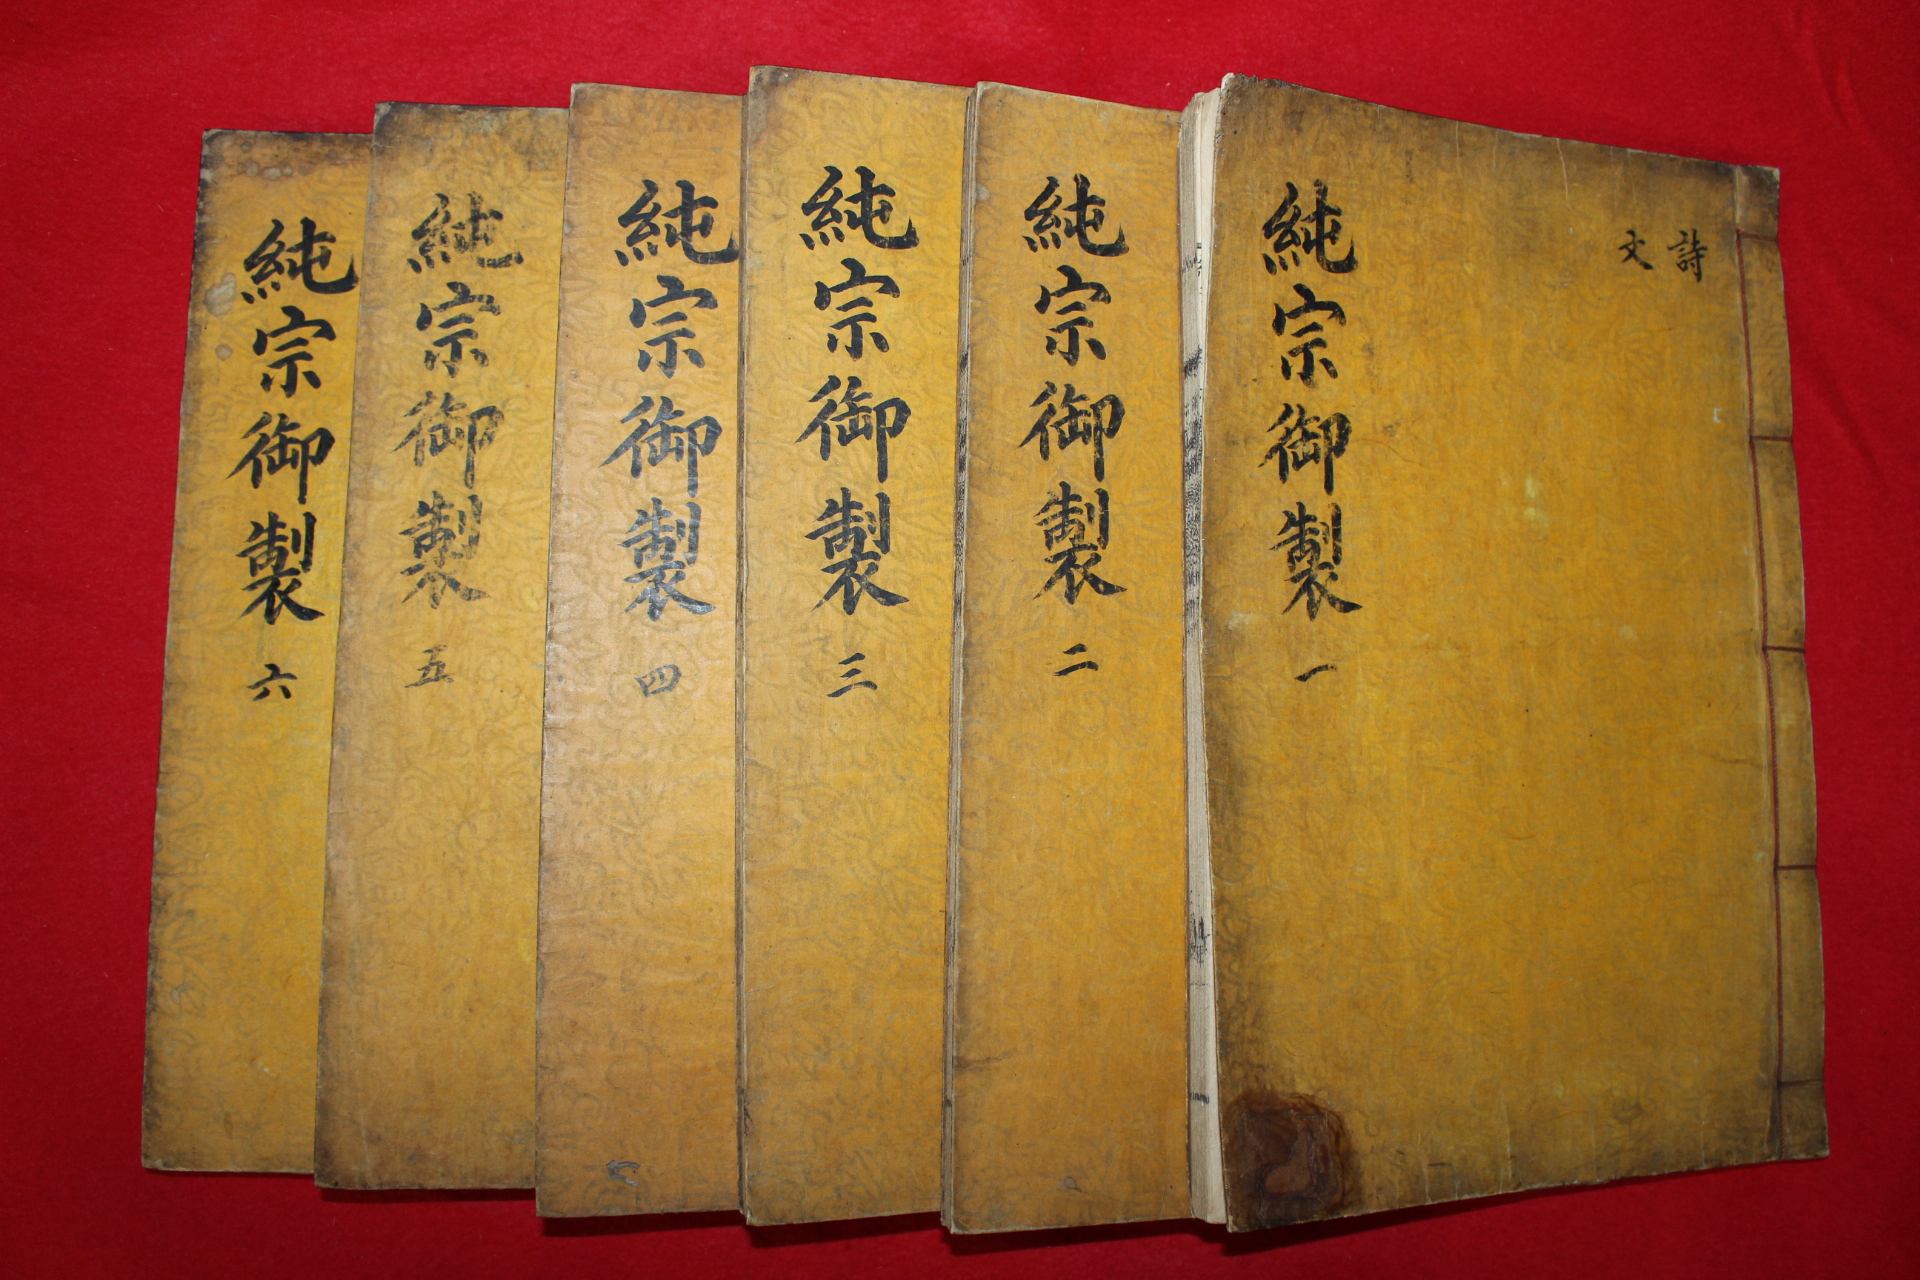 詩
文
純宗御製 一
純宗御製 二
純宗御製 三
純宗御製 四
純宗御製 五
純宗御製 六